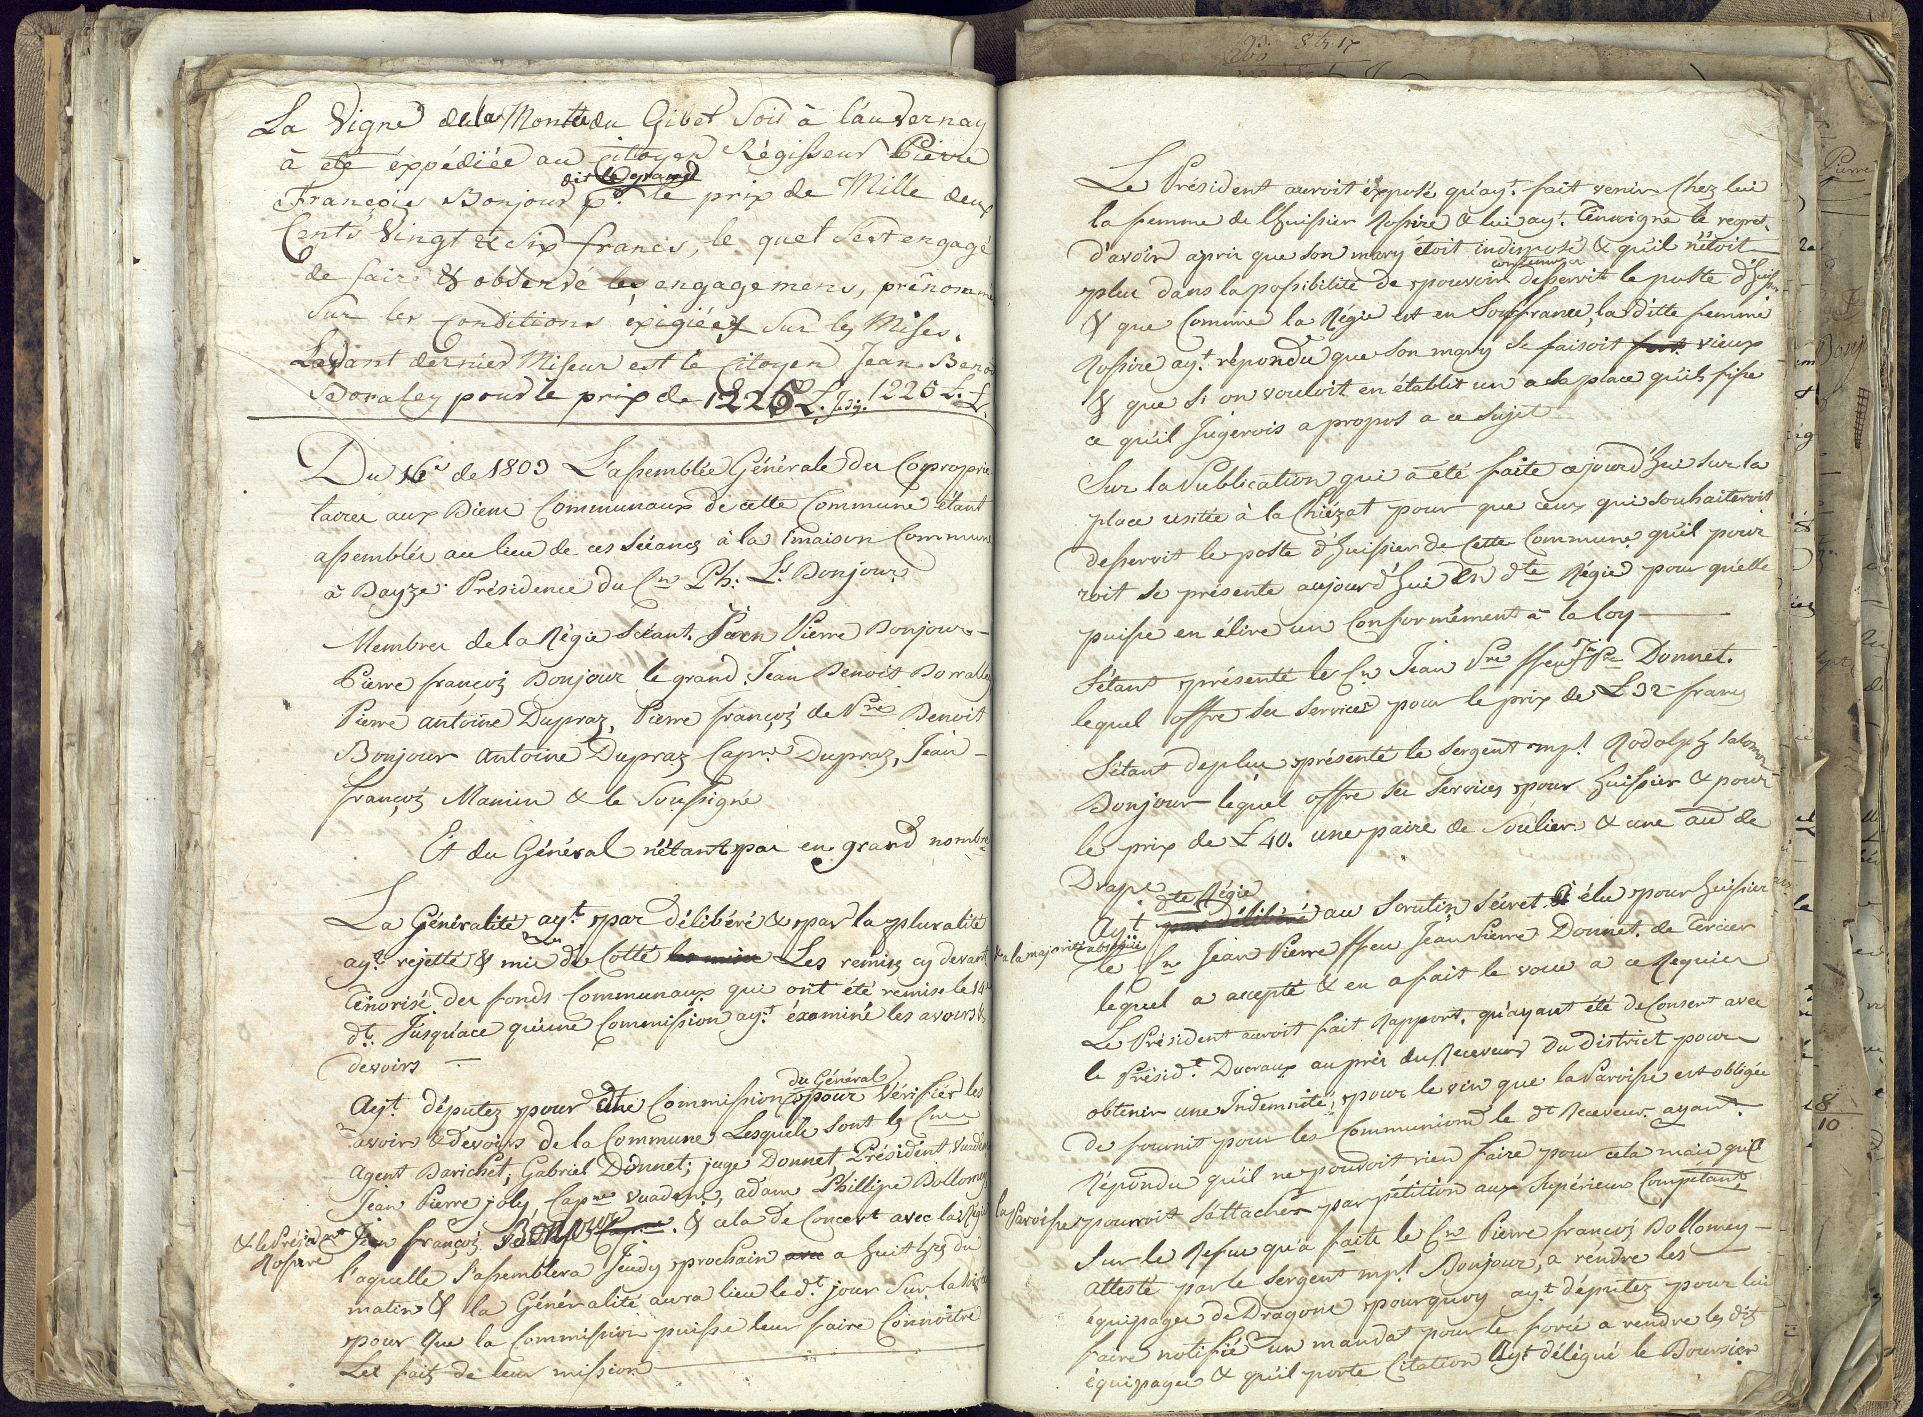 La Vigne de la Montée du Gibet Soit à lauvernay
à été éxpédiée au citoyen Régisseur Pierre
dit le grand
François Bonjour pr. le prix de Mille deux
Cents Vingt & Six francs, le quel S'est engagé
de faire & observé les engagemens, prénommé
Sur les conditions éxigiéés Sur les Mises.
dernier Miseur est le Citoyen Jean Benoi
Boraley pour le prix de 1226 L. 1225 L.
Du 16e de 1803 L'assemblée Générale des Coproprie
taires aux Biens Communaux de cette Commune étant
assemblée au lieu de ces Séances à la maison Commune
à Présidence du Cn Ph. Ls. Bonjour
Membres de la Régie Séant. Jean Pierre Bonjour
Pierre françois Bonjour le grand. Jean Benoit Borralley
Pierre antoine Dupraz, Pierre françois de Pre Benoit
Bonjour antoine Dupraz Capne Dupraz, Jean
françois Mamin & le Soussigné
Et du Général n'étant pas en grand nombre
La Généralité ayt. par délibéré & par la pluralité
ayt. rejetté & mis de Cotté les mise Les remises cy devant
Ténorisé des fonds Communaux qui ont été remis le 14e
dt. Jusqu'ace qu'une Commission ayt. éxaminé les avoirs &
devoirs
du Général
Ayt. députez pour une Commission pour Vérifier les
avoirs & devoirs de la Commune Lesquels sont les Cns
Agent Barichet; Gabriel Donnet; juge Donnet, Président Vuadens
Jean Pierre joly Capne Vuadens, adam Phillipe Bollomey
& le Présidnt Rossire
Jean françois Bonjour. & cela de Concert avec la Régie
l'aquelle S'assemblera Jeudy prochain a huit hres du
matin & la Généralité aura lieu le dt. jour Sur la Soirée
pour que la Commission puisse leur faire Connoitre
Les faits de leur mission
Le Président auroit éxposé qu'ayt. fait venir Chez lui
la femme de l'huissier Rossire & lui ayt. Témoigné le regret
d'avoir apris que son mary étoit indisposé & qu'il n'étoit
plus dans la possibilité de pouvoir desservir le poste d'huissr
& que Comme la Régie est en Souffrance, la ditte femme
Rossire ayt. répondu que son mary se faisoit fort vieux
& que si on vouloit en établir un a sa place qu'ils fisse
ce qu'il Jugerois a propos a ce Sujet
Sur la Publication qui a été faite cejourd'hui sur la
place usitée à la Chiézat pour que ceux qui souhaiteroit
desservoit le poste d'huissier de Cette Commune qu'il pour
roit se présente aujourd'hui En dte Régie pour qu'elle
puisse en élire un Conformément à la loy
S'étant présenté le Cn Jean Pre ffeu Jn Pre Donnet.
lequel offre ses services pour le prix de L 32 francs
S'étant deplus présenté le sergent mpl Rodolph Salomon
Bonjour léquel offre ses services pour huissier & pour
le prix de L 40. une paire de Soulier & une au de
Drap
dte Régie
Ayt par délibéré au Scrutin Sécret à élu pour huissier
& a la majorité absolue
le Cn Jean Pierre ffeu Jean Pierre Donnet. de Cercier
lequel a accepté & en a fait le voeu a ce Requier
Le Président auroit fait Rapport, qu'ayant été de Consert avec
le Présidt. Ducraux auprès du Receveur du District pour
obtenir une Indemnité, pour le vin que la Paroisse est obligée
de fournit pour les Communions le dt Receveur ayant
Répondu qu'il ne pouvoit rien faire pour cela mais que
la Paroisse pourroit S'attacher par pétition aux Supérieurs Compétant
Sur le Refus qu'a faite le Cn Pierre françois Bollomey
attesté par le Sergent mpl Bonjour, a rendre les
équipages de Dragons pourquoy ayt députez pour lui
faire notifié un mandat pour le forcé a rendre les dts
équipages & qu'il porte Citation Ayt délégué le Boursier